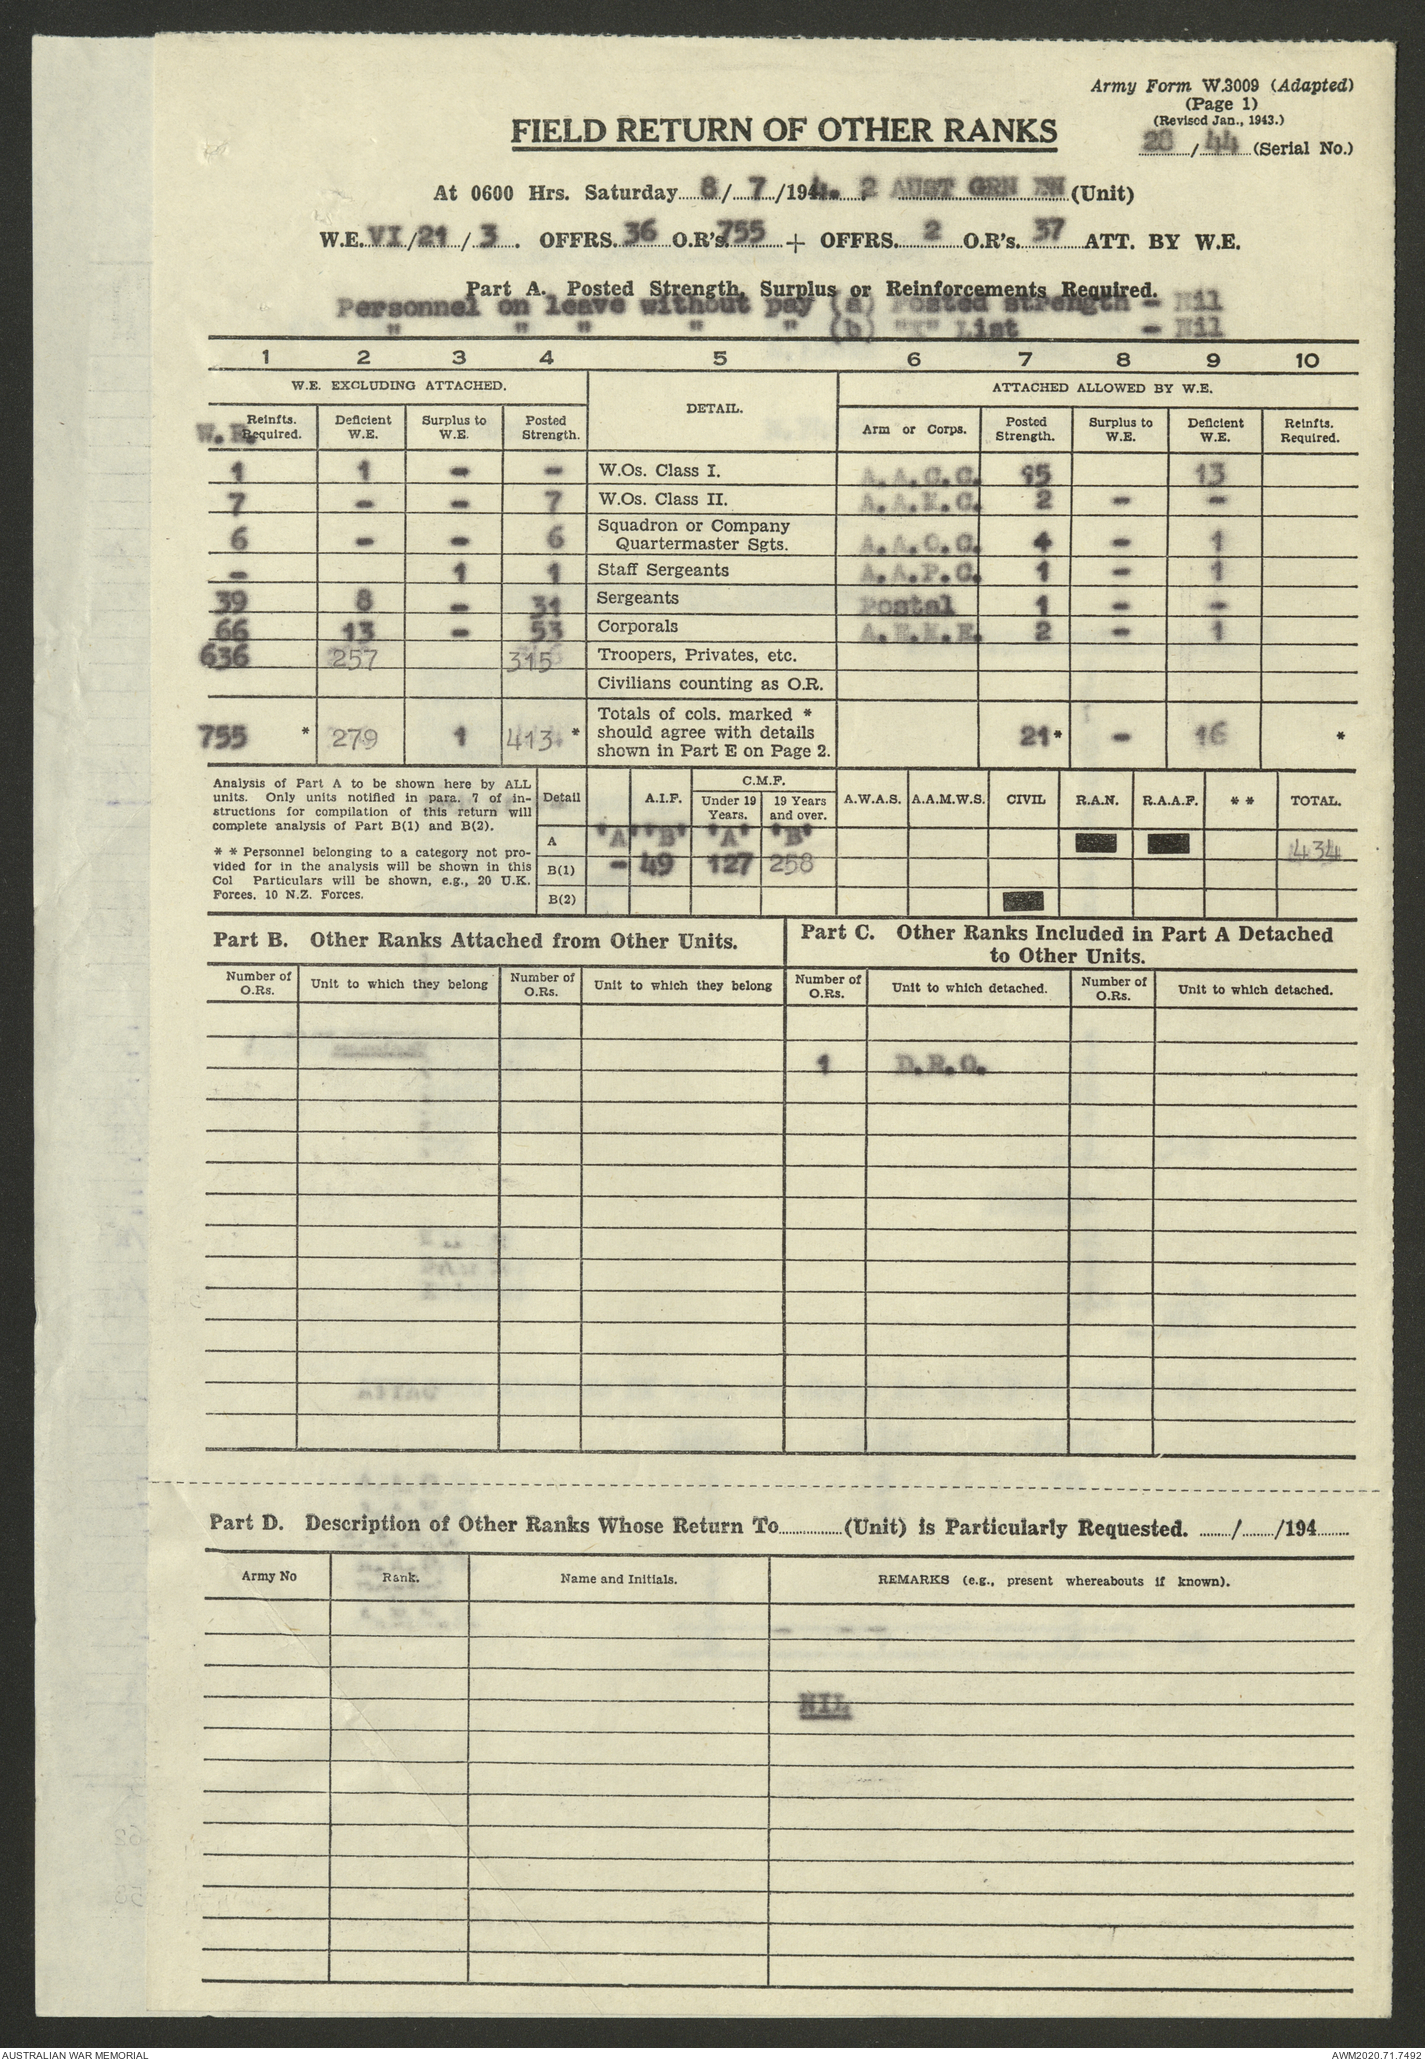 Army Form W.3009 (Adapted)
(Page 1)
(Revised Jan., 1943.)
28/44 (Serial No.)
FIELD RETURN OF OTHER RANKS
At 0600 Hrs. Saturday 8/7/1944. 2 AUST GRN BN (Unit)
W.E. VI/21/3. OFFRS. 36 O.R's. 755 + OFFRS. 2 O.R's. 37 ATT. BY W.E.
Part A. Posted Strength, Surplus or Reinforcements Required.
Personnel on leave without pay (a) Posted strength - Nil
" " " " " (b) "X" List - Nil
1 2 3 4 5 6 7 8 9 10
W.E. EXCLUDING ATTACHED. DETAIL. ATTACHED ALLOWED BY W.E.
W.E. Reinfts. Required. Deficient W.E. Surplus to W.E. Posted Strength. Arm or Corps. Posted Strength. Surplus to W.E. Deficient W.E. Reinfts. Required.
1 1 - - W.Os. Class I. A.A.C.C. 15 13
7 - - 7 W.Os. Class II. A.A.M.C. 2 - -
6 - - 6 Squadron or Company Quartermaster Sgts. A.A.O.C. 4 - 1
- 1 1 Staff Sergeants A.A.P.C. 1 - 1
39 8 - 31 Sergeants Postal 1 - -
66 13 - 53 Corporals A.E.M.E. 2 - 1
636 257 315 Troopers, Privates, etc.
Civilians counting as O.R.
755 * 279 1 413 * Totals of cols. marked * should agree with details shown in Part E on Page 2. 21* - 16 *
Analysis of Part A to be shown here by ALL units. Only units notified in para. 7 of instructions for compilation of this return will complete analysis of Part B(1) and B(2).
* * Personnel belonging to a category not provided for in the analysis will be shown in this Col Particulars will be shown, e.g., 20 U.K. Forces, 10 N.Z. Forces.
Detail A.I.F. C.M.F. Under 19 Years. 19 Years and over. A.W.A.S. A.A.M.W.S. CIVIL R.A.N. R.A.A.F. * * TOTAL.
A "A" "B" "A" "B" 434
B(1) - 49 127 258
B(2)
Part B. Other Ranks Attached from Other Units.
Part C. Other Ranks Included in Part A Detached to Other Units.
Number of O.Rs. Unit to which they belong Number of O.Rs. Unit to which they belong Number of O.Rs. Unit to which detached. Number of O.Rs. Unit to which detached.
1 D.R.O.
Part D. Description of Other Ranks Whose Return To............(Unit) is Particularly Requested. ......./......./194.......
Army No Rank. Name and Initials. REMARKS (e.g., present whereabouts if known).
NIL
AUSTRALIAN WAR MEMORIAL AWM2020.71.7492